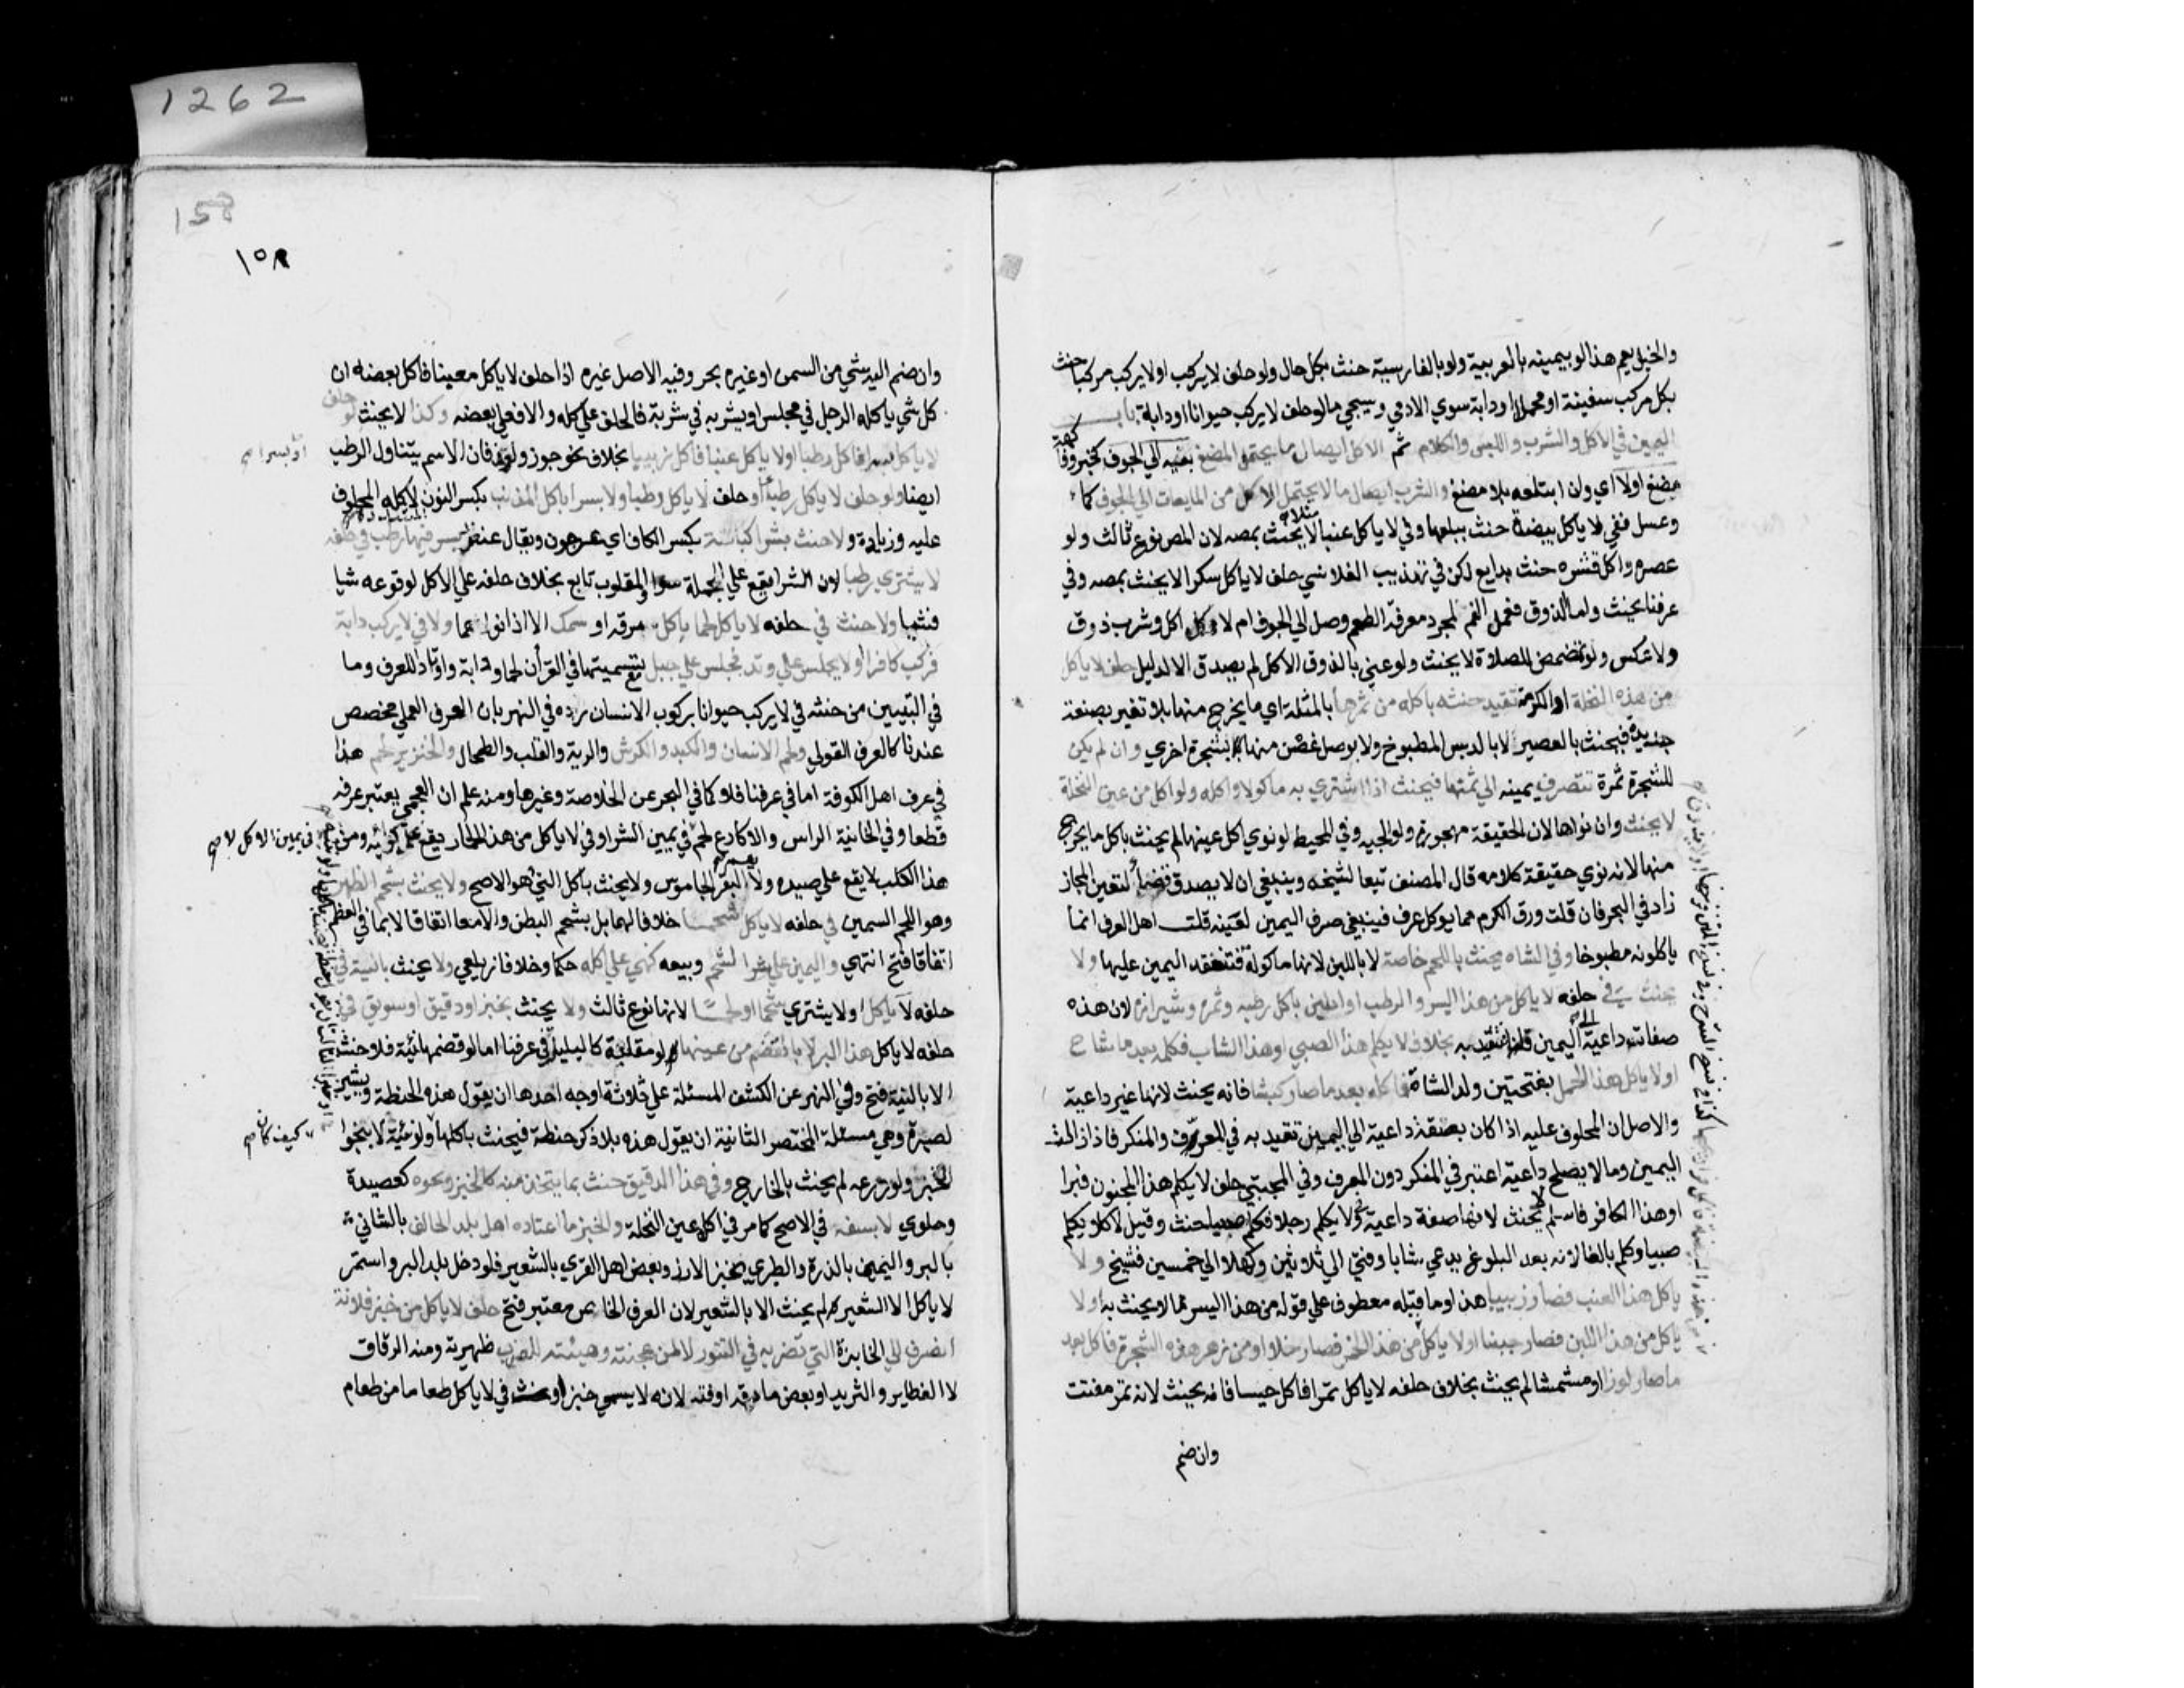 1262
والخيل يعم هذا لو بيمينه بالعربية ولو بالفارسية حنث بكل حال ولو حلف لا يركب او لا يركب مركبا حنث
بكل مركب سفينة او محملا او دابة سوي الادمي وسيجي ما لو حلف لا يركب حيوانا او دابة باب
اليمين في الاكل والشرب واللبس والكلام ثم الاكل ايصال ما يحتمل المضغ بفيه الي الجوف كخبز وفاكهة
مضغ اولا اي وان ابتلعه بلا مضغ والشرب ايصال ما لا يحتمل الاكل من المايعات الي الجوف كماء
وعسل ففي لا ياكل بيضة حنث ببلعها وفي لا ياكل عنبا مثلا لا يحنث بمصه لان المص نوع ثالث ولو
عصره واكل قشره حنث بدايع لكن في تهذيب القلانسي حلف لا ياكل سكرا لا يحنث بمصه وفي
عرفنا يحنث واما الذوق فعمل الفم لمجرد معرفة الطعم وصل الي الجوف ام لا فكل اكل وشرب ذوق
ولا عكس ولو تمضمض للصلاة لا يحنث ولو عني بالذوق الاكل لم يصدق الا لدليل حلف لا ياكل
من هذه النخلة او الكرمة تقيد حنثه باكله من ثمرها بالمثلثة اي ما يخرج منها بلا تغير بصنعة
جديدة فيحنث بالعصير لا بالدبس المطبوخ ولا بوصل غصن منها بشجرة اخري وان لم يكن
للشجرة ثمرة تنصرف يمينه الي ثمنها فيحنث اذا اشتري به ماكولا واكله ولو اكل من عين النخلة
لا يحنث وان نواها لان الحقيقة مهجورة ولوالجيه وفي المحيط لو نوي اكل عينها لم يحنث باكل ما يخرج
منها لانه نوي حقيقة كلامه قال المصنف تبعا لشيخه وينبغي ان لا يصدق قضاء لتعين المجاز
زاد في البحر فان قلت ورق الكرم مما يوكل عرفا فينبغي صرف اليمين لعينه قلت اهل العرف انما
ياكلونه مطبوخا وفي الشاه يحنث باللحم خاصة لا باللبن لانها ماكولة فتنعقد اليمين عليها ولا
يحنث في حلفه لا ياكل من هذا البسر او الرطب او اللبن باكل رطبه وتمره وشيرازه لان هذه
صفات داعية الي اليمين فتتقيد به بخلاف لا يكلم هذا الصبي او هذا الشاب فكلمه بعد ما شاخ
او لا ياكل هذا الحمل بفتحتين ولد الشاة فاكله بعد ما صار كبشا فانه يحنث لانها غير داعية
والاصل ان المحلوف عليه اذا كان بصفة داعية الي اليمين تقيد به في المعرف والمنكر فاذا زالت
اليمين وما لا يصلح داعية اعتبر في المنكر دون المعرف وفي المجتبي حلف لا يكلم هذا المجنون فبرا
او هذا الكافر فاسلم لا يحنث لانها صفة داعية وفي لا يكلم رجلا فكلم صبيا حنث وقيل لا كلا يكلم
صبيا وكلم بالغا لانه بعد البلوغ يدعي شابا وفتي الي ثلاثين وكهلا الي خمسين فشيخ ولا
ياكل هذا العنب فصار زبيبا هذا وما قبله معطوف علي قوله من هذا البسر مما لا يحنث به او لا
ياكل من هذا اللبن فصار جبنا او لا ياكل من هذا الخمر فصار خلا او من زهر هذه الشجرة فاكل بعد
ما صار لوزا او مشمشا لم يحنث بخلاف حلفه لا ياكل تمرا فاكل حيسا فانه يحنث لانه تمر مفتت
وان ضم
158
١٥٨
وان ضم اليه شي من السمن او غيره بحر وفيه الاصل غيره اذا حلف لا ياكل معينا فاكل بعضه ان
كل شي ياكله الرجل في مجلس او يشربه في شربة فالحلف علي كله والا فعلي بعضه وكذا لا يحنث لو حلف
لا ياكل بسرا فاكل رطبا او لا ياكل عنبا فاكل زبيبا بخلاف نحو جوز ولوز فان الاسم يتناول الرطب
ايضا ولو حلف لا ياكل رطبا او حلف لا ياكل رطبا ولا بسرا باكل المذنب بكسر النون لاكله المحلوف
عليه وزيادة ولا حنث بشرا كباسة بكسر الكاف اي عرجون ويقال عنقود بسر فيها رطب في حلفه
لا يشتري رطبا لان الشرا يقع علي الجملة والمغلوب تابع بخلاف حلفه علي الاكل لوقوعه شيا
فشيا ولا حنث في حلفه لا ياكل لحما باكل مرقه او سمك الا اذا نواهما ولا في لا يركب دابة
فركب كافرا او لا يجلس علي وتد فجلس علي جبل مع تسميتها في القرآن لحما ودابة واوتادا للعرف وما
في التبيين من حنثه في لا يركب حيوانا بركوب الانسان رده في النهر بان العرف العملي مخصص
عندنا كالعرف القولي ولحم الانسان والكبد والكرش والرية والقلب والطحال والخنزير لحم هذا
في عرف اهل الكوفة اما في عرفنا فلا كما في البحر عن الخلاصة وغيرها ومنه علم ان العجمي يعتبر عرفه
قطعا وفي الخانية الراس والاكارع لحم في يمين الشرا وفي لا ياكل من هذا الحمار يقع علي كرائه ومن
في يمين الاكل لا صح
هذا الكلب لا يقع علي صيده ولا يعم البقر الجاموس ولا يحنث باكل الني هو الاصح ولا يحنث بشحم الظهر
وهو اللحم السمين في حلفه لا ياكل شحما خلافا لهما بل بشحم البطن والامعا اتفاقا لا بما في العظم
اتفاقا فتح انتهي واليمين علي شرا الشحم وبيعه كهي علي اكله حكما وخلافا زيلعي ولا يحنث بالية في
حلفه لا ياكل او لا يشتري شحما او لحما لانها نوع ثالث ولا يحنث بخبز او دقيق او سويق في
حلفه لا ياكل هذا البر الا بالقضم من عينها لو مقلية كالبليلة في عرفنا اما لو قضمها نيئة فلا حنث
الا بالنية فتح وفي النهر عن الكشف المسئلة علي ثلاثة اوجه احدها ان يقول هذه الحنطة ويشير
لصبرة وهي مسئلة المختصر الثانية ان يقول هذه بلا ذكر حنطة فيحنث باكلها ولو نيئة لا بنحو
كيف كان صح
الخبز ولو زرعه لم يحنث بالخارج وفي هذا الدقيق حنث بما يتخذ منه كالخبز ونحوه كعصيدة
وحلوي لا بسفه في الاصح كما مر في اكل عين النخلة والخبز ما اعتاده اهل بلد الحالف بالشامي
بالبر واليمني بالذرة والطبري بخبز الارز وبعض اهل القري بالشعير فلو دخل بلد البر واستمر
لا ياكل الا الشعير لم يحنث الا بالشعير لان العرف الخاص معتبر فتح حلف لا ياكل من خبز فلانة
انصرف الي الخابزة التي تضربه في التنور لا لمن عجنته وهيئته للضرب ظهيرية ومنه الرقاق
لا الفطاير والثريد او بعض ما دقه او فته لانه لا يسمي خبزا وحنث في لا ياكل طعاما من طعام